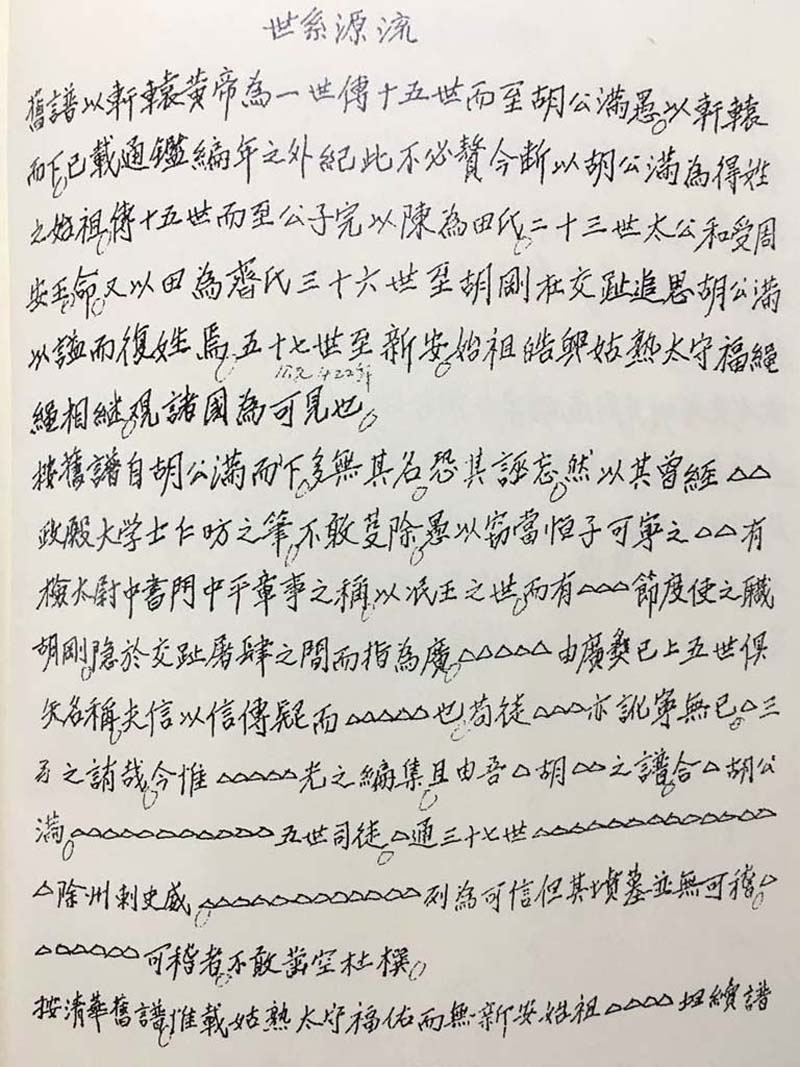 世系源流
舊譜以軒轅黃帝為一世傳十五世而至胡公滿。愚以軒轅
而下。已載通鑑編年之外紀此不必贅今断以胡公滿為得姓
之始祖。傳十五世而至公子完以陳為田氏。二十三世太公和受周
安王。命。又以田為齊氏三十六世至胡剛杜交趾追思胡公滿
以謚而復姓焉。五十七世至新安。始祖皓興姑熟太守福繩
公元422年
繩相繼。观諸國為可見也。
按舊譜自胡公滿而下。多無其名。恐其誣忘。然以其曾經△△
政殿大学士仁昉之筆。不敢芟除。愚以竊當恒子可寧之△△有
檢太尉中書門中平章事之稱。以泯王之世。而有△△△節度使之職
胡剛。隐於交趾屠肆之間而指為廣。△△△△△由廣彝已上五世俱
矢名稱。夫信以信傳疑而△△△△△△也。苟徒△△△亦訛寧無已。△三
豕之誚哉。今惟△△△△△光之編集。且由吾△胡△△之譜。合△胡公
滿。△△△△△△△△△△△△五世司徒。△通三十七世△△△△△△△△△△△△△△
△除州刺史威。△△△△△△△△△△△△列為可信但其墳墓並無可稽。△
△△△△△△可稽者。不敢凿空杜撰。
按清華舊譜。惟載姑熟太守福佑而無。新安始祖△△△△坦續譜